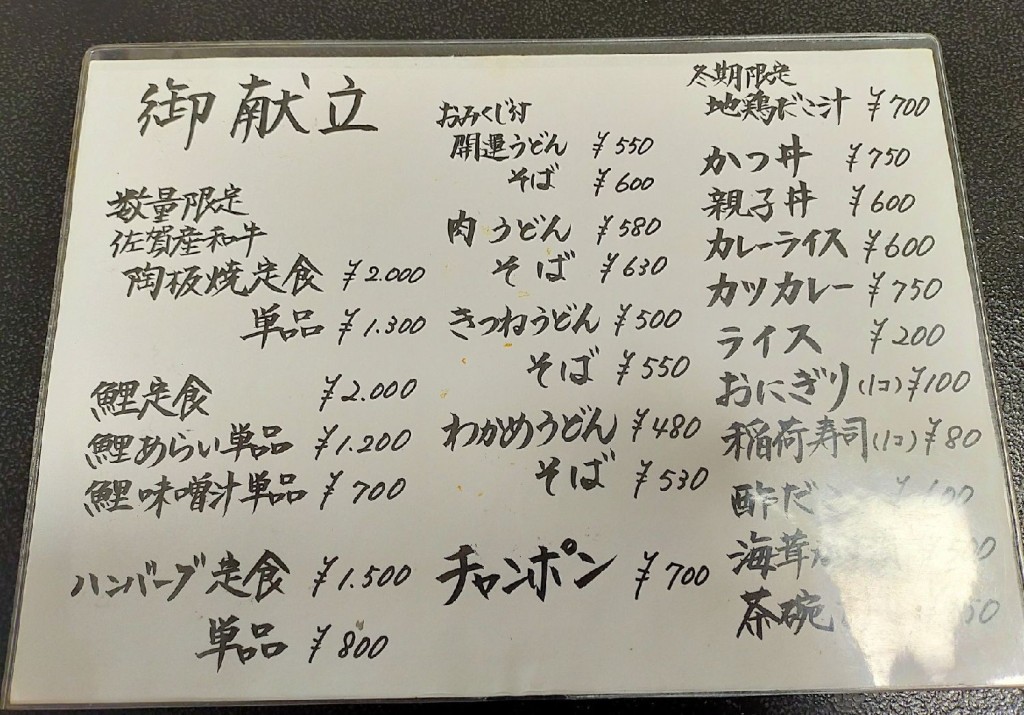 御献立
数量限定
佐賀産和牛
陶板焼定食 ¥2.000
単品 ¥1.300
鯉定食 ¥2.000
鯉あらい単品 ¥1.200
鯉味噌汁単品 ¥700
ハンバーグ定食 ¥1.500
単品 ¥800
おみくじ付
開運うどん ¥550
そば ¥600
肉うどん ¥580
そば ¥630
きつねうどん ¥500
そば ¥550
わかめうどん ¥480
そば ¥530
チャンポン ¥700
冬期限定
地鶏だご汁 ¥700
かつ丼 ¥750
親子丼 ¥600
カレーライス ¥600
カツカレー ¥750
ライス ¥200
おにぎり(1コ) ¥100
稲荷寿司(1コ) ¥80
酢だこ
海茸
茶碗